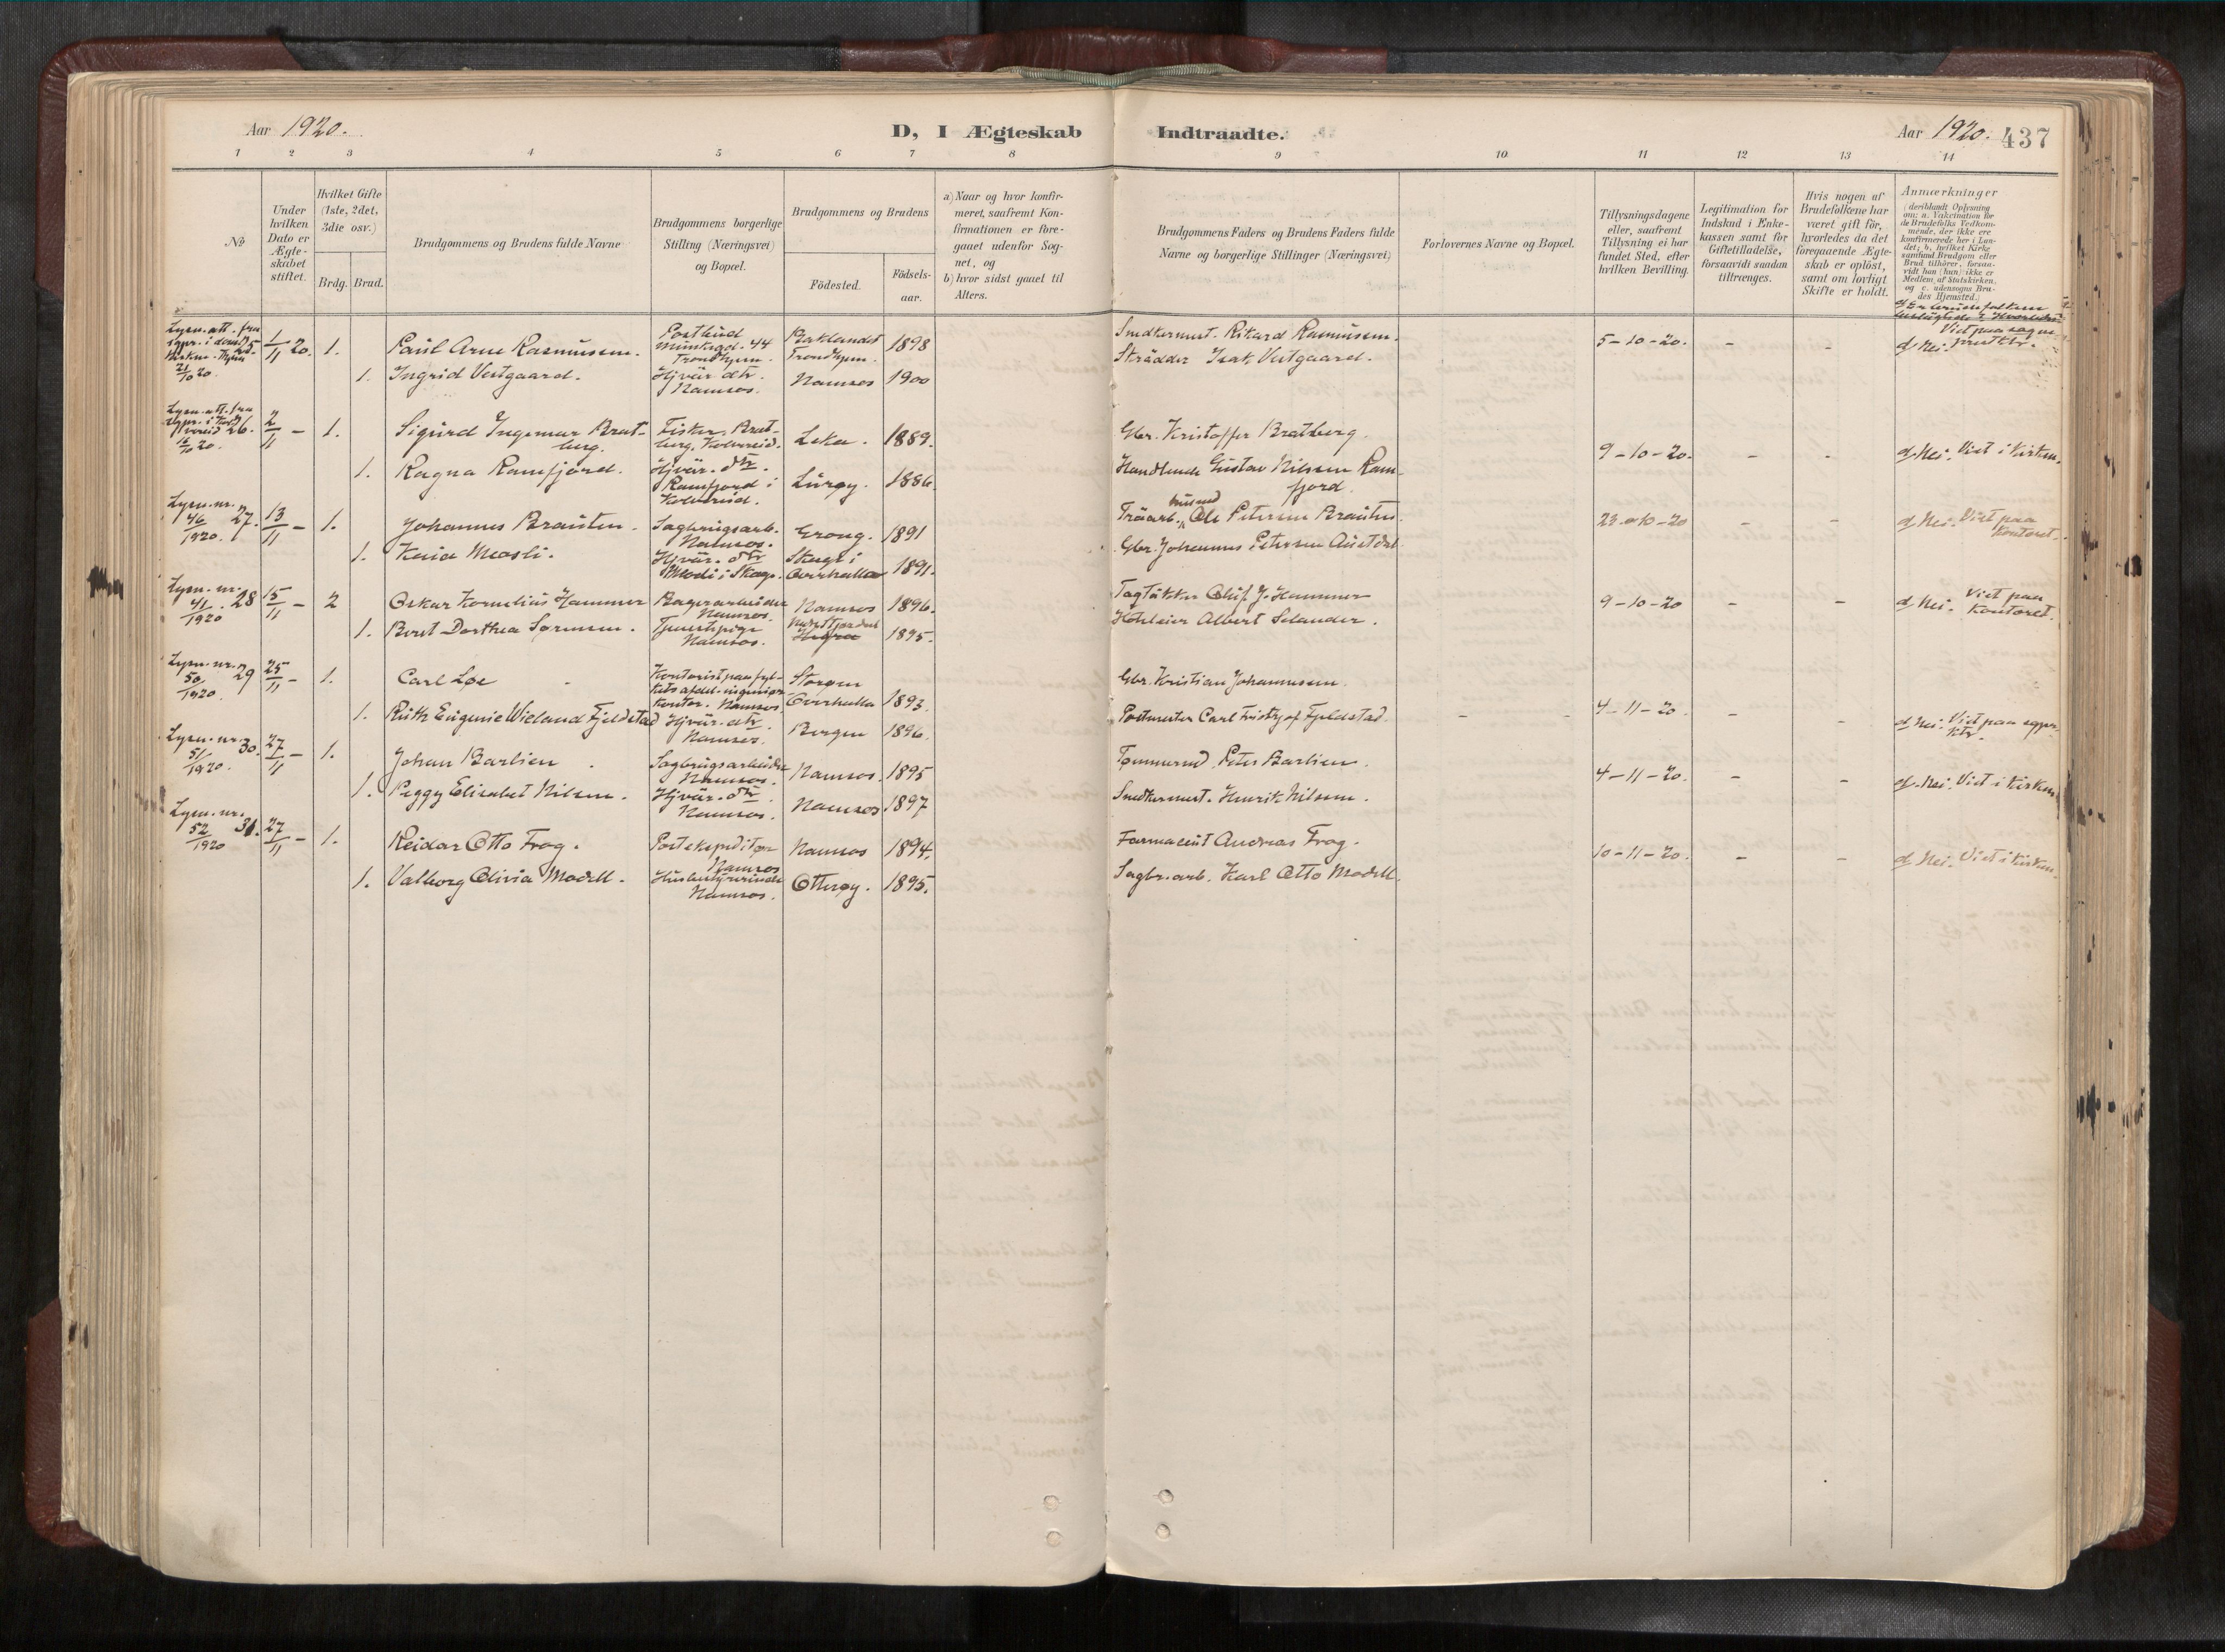 Aar 1920.
D, I Ægteskab Indtraadte.
Aar 1920. 437
1 2 3 4 5 6 7 8 9 10 11 12 13 14
No
Under hvilken Dato er Ægteskabet stiftet.
Hvilket Gifte (1ste, 2det, 3die osv.)
Brdg. Brud.
Brudgommens og Brudens fulde Navne
Brudgommens borgerlige Stilling (Næringsvei) og Bopæl.
Brudgommens og Brudens
Födested. Födselsaar.
a) Naar og hvor konfirmeret, saafremt Konfirmationen er foregaaet udenfor Sognet, og
b) hvor sidst gaaet til Alters.
Brudgommens Faders og Brudens Faders fulde Navne og borgerlige Stillinger (Næringsvei)
Forlovernes Navne og Bopæl.
Tillysningsdagene eller, saafremt Tillysning ei har fundet Sted, efter hvilken Bevilling.
Legitimation for Indskud i Enkekassen samt for Giftetilladelse, forsaavidt saadan tiltrænges.
Hvis nogen af Brudefolkene har været gift för, hvorledes da det foregaaende Ægteskab er oplöst, samt om lovligt Skifte er holdt.
Anmærkninger
(deriblandt Oplysning om: a. Vakcination for de Brudefolks Vedkommende, der ikke ere konfirmerede her i Landet; b. hvilket Kirkesamfund Brudgom eller Brud tilhörer, forsaavidt han (hun) ikke er Medlem af Statskirken, og c. udensogns Brudes Hjemsted.)
Lysn. att. fra
sgpr. i
21/10 20
1/11 20. 1. Paul Arne Rasmussen. Postbud Trondhjem. Baklandet Trondhjem. 1898 Snedkermest. Rikard Rasmussen. 5-10-20. - - d Nei. Viet paa
1. Ingrid Vestgaard. Hjvær. dtr. Namsos. Namsos 1900 Skrädder Isak Vestgaard.
Lysn. att. fra
16/10 20. 26. 2/11 - 1. Sigurd Ingemar Bratberg. Fisker, Bratberg, Kolvereid. Leka. 1889. Gbr. Kristoffer Bratberg.
1. Ragna Ramfjord. Hjvær. dtr. Ramfjord i Kolvereid. Lurøy. 1886. Handlende Gustav Nilsen Ramfjord. 9-10-20. - - d Nei. Viet i kirken.
Lysn. nr. 46/1920. 27. 13/11 - 1. Johannes Brauten. Sagbrugsarb. Namsos. Grong. 1891 Träarb. Ole Petersen Brauten. 23-10-20 - - d Nei. Viet paa kontoret.
1. Karia Moosli. Hjvær. dtr. i Skage. Skage i Overhalla 1891. Gbr. Johannes Petersen
Lysn. nr. 41/1920 28 15/11 - 2 Oskar Kornelius Hammer Bagerarbeider Namsos. Namsos 1896. Tagtäkker Oluf J. Hammer 9-10-20 - - d Nei. Viet paa kontoret.
1. Beret Dorthea Sørensen. Tjenestepige Namsos. Hegra 1895. Albert Selander.
Lysn. nr. 50/1920. 29 25/11 - 1. Carl Løe Kontorist paa fylkets afdel. ingeniør kontor. Namsos. Overhalla 1893. Gbr. Kristian Johannesen.
1. Ruth Eugenie Wieland Fjeldstad Hjvær. dtr. Namsos. Bergen 1896. Postmester Carl Fjeldstad. - - 4-11-20. - - d Nei. Viet paa sgpr. ktr.
Lysn. nr. 51/1920. 30. 27/11 - 1. Johan Barlien Sagbrugsarbeider Namsos. Namsos. 1895 Tømmermd. Peter Barlien. 4-11-20. - - d. Nei. Viet i kirken
1. Peggy Elisabet Nilsen. Hjvær. dtr. Namsos. Namsos 1897 Snedkermest. Henrik Nilsen.
Lysn. nr. 52/1920 31. 27/11 - 1. Reidar Otto Frog. Postekspeditør Namsos Namsos 1894. Farmaceut Andreas Frog. 10-11-20. - - d Nei. Viet i kirken.
1. Valborg Olivia Modell. Husbestyrerinde Namsos. Otterøy. 1895. Sagbr. arb. Karl Otto Modell.